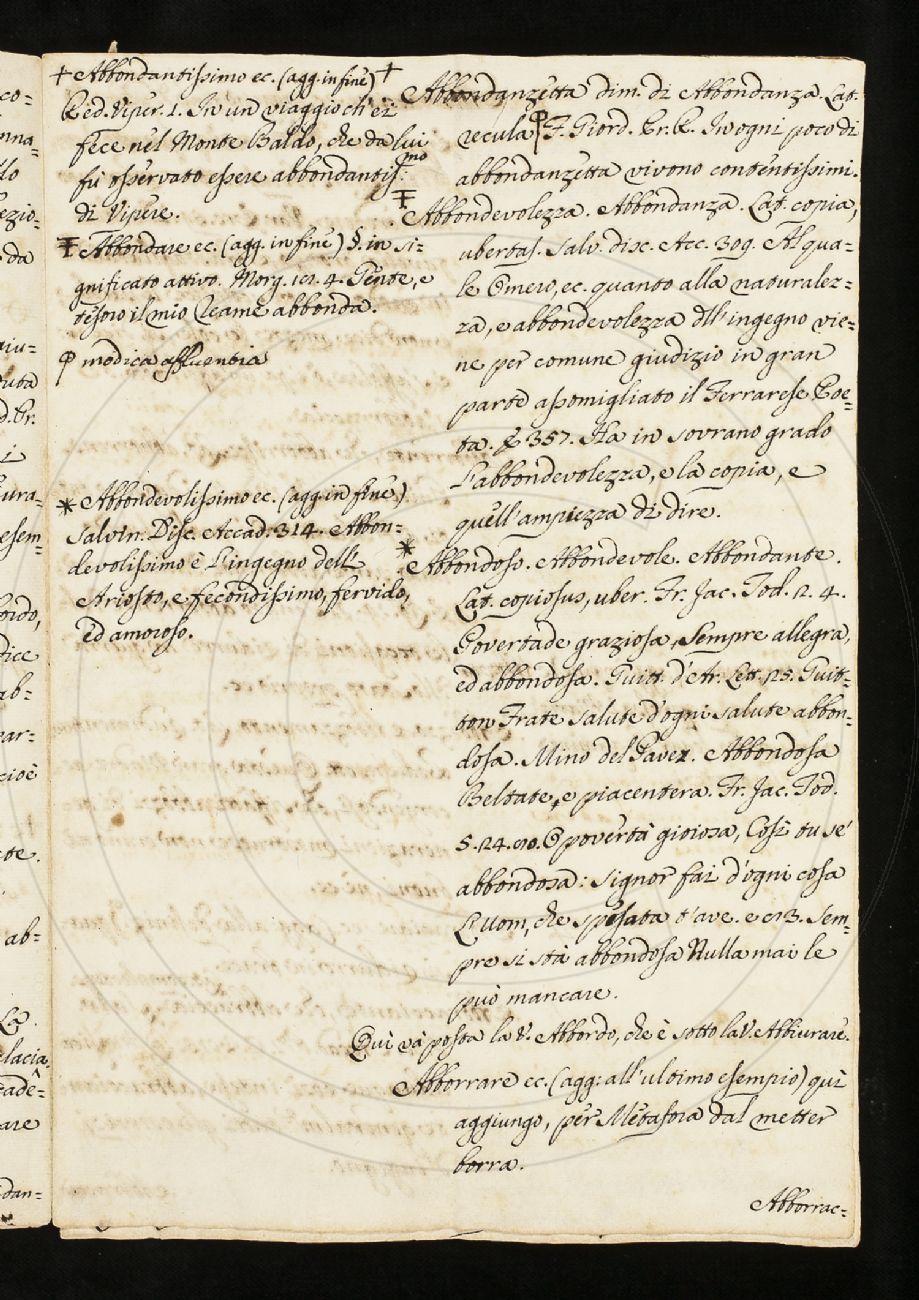 ✝ Abbondantissimo ec. (agg. in fine) ✝
Red. Viper. 1. In un viaggio ch'ei
fece nel Monte Baldo, che da lui
fù osservato essere abbondantiss:mo
di Vipere.
Abbondare ec. (agg. in fine) §. in si=
gnificato attivo. Morg. 4. Gente, e
tesoro il mio Reame abbonda.
modica affluentia
* Abbondevolissimo ec. (agg. in fine)
Salvin. Disc. Accad. 314. Abbon=
devolissimo è l'ingegno dell'
Ariosto, e fecondissimo, fervido,
ed amoroso.
Abbondanzetta dim. di Abbondanza. Lat.
recula F. Giord. Pr. R. In ogni poco di
abbondanzetta vivono contentissimi.
Abbondevolezza. Abbondanza. Lat. copia,
ubertas. Salv. disc. Acc. 309. Al qua=
le Omero, ec. quanto alla naturalez=
za, e abbondevolezza dell'ingegno vie=
ne per comune giudizio in gran
parte assomigliato il Ferrarese Poe=
ta. E 357. Ha in sovrano grado
l'abbondevolezza, e la copia, e
quell'ampiezza di dire.
* Abbondoso. Abbondevole. Abbondante.
Lat. copiosus, uber. Fr. Jac. Tod. 2. 4.
Povertade graziosa, Sempre allegra,
ed abbondosa. Guitt. d'Ar. Lett. 25. Guit=
ton Frate salute d'ogni salute abbon=
dosa. Mino del Pavez. Abbondosa
Beltate, e piacentera. Fr. Jac. Tod.
5. 24. 10. O povertà gioiosa, Così tu se'
abbondosa: Signor fai d'ogni cosa
L'Uom, che sposata t'ave. e 13. Sem=
pre si stà abbondosa Nulla mai le
può mancare.
Quì và posta la V. Abbordo, che è sotto la V. Abburare.
Abborrare ec. (agg: all'ultimo esempio) quì
aggiungo, per Metafora dal metter
borra.
Abborrac=